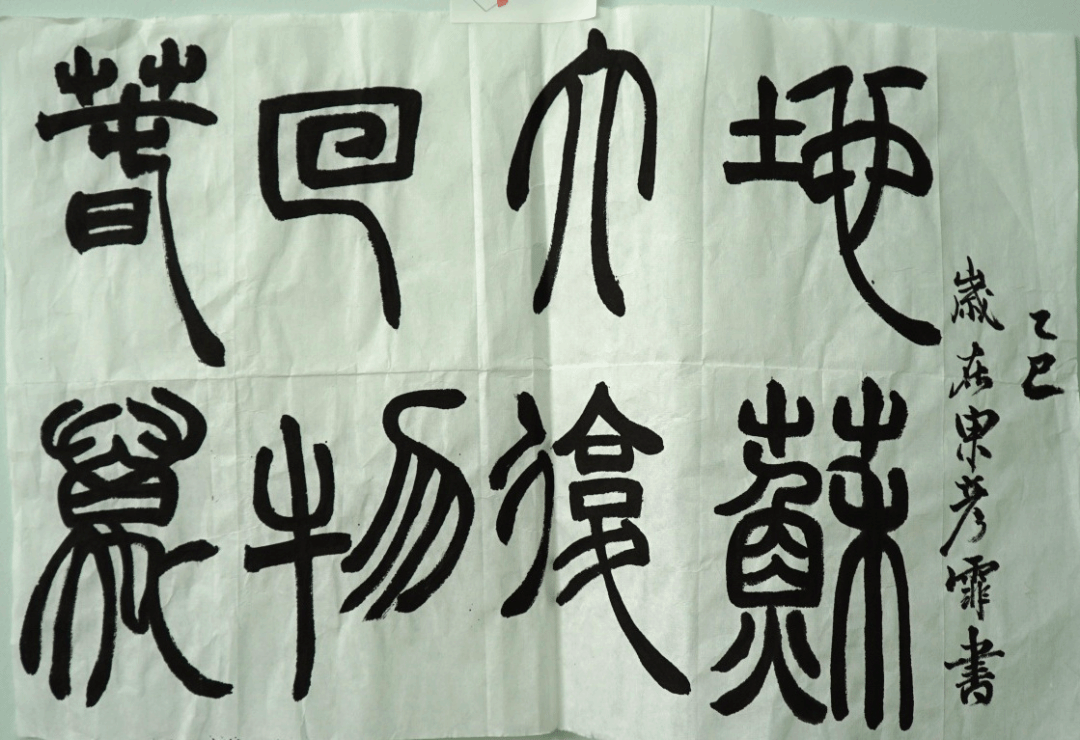 春回大地
萬物復蘇
乙巳
歲在東霏書